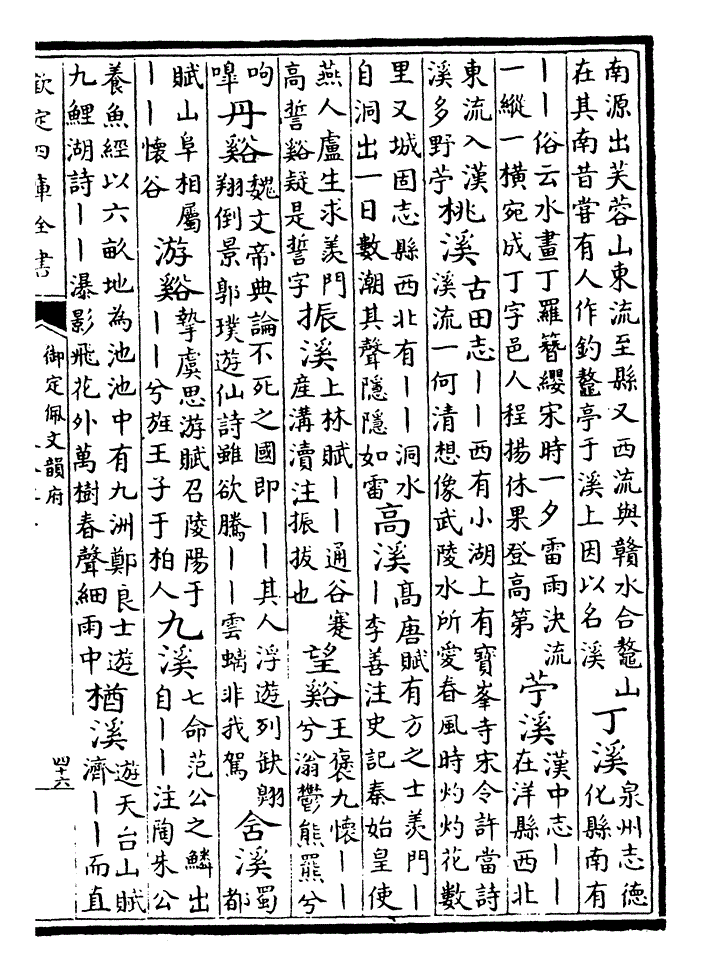 南源出芙蓉山東流至縣又西流與贛水合鼇山
在其南昔嘗有人作釣鼇亭于溪上因以名溪
丁溪
泉州志德
化縣南有
——俗云水畫丁羅簪纓宋時一夕雷雨決流
一縱一橫宛成丁字邑人程揚休果登高第
苧溪
漢中志——
在洋縣西北
東流入漢
溪多野苧
桃溪
古田志——西有小湖上有寶峯寺宋令許當詩
溪流一何清想像武陵水所愛春風時灼灼花數
里又城固志縣西北有——洞水
自洞出一日數潮其聲隱隱如雷
高溪
高唐賦有方之士羨門—
—李善注史記秦始皇使
燕人盧生求羨門
高誓谿疑是誓字
振溪
上林賦——通谷蹇
産溝瀆注振拔也
望谿
王褒九懷——
兮滃鬱熊羆兮
呴
嘷
丹谿
魏文帝典論不死之國即——其人浮遊列缺翺
翔倒景郭璞遊仙詩雖欲騰——雲螭非我駕
含溪
蜀
都
賦山阜相屬
——懷谷
游谿
摯虞思游賦召陵陽于
——兮旌王子于柏人
九溪
七命范公之鱗出
自——注陶朱公
養魚經以六畝地為池池中有九洲鄭良士遊
九鯉湖詩——瀑影飛花外萬樹春聲細雨中
楢溪
遊天台山賦
濟——而直
欽定四庫全書
御定佩文韻府
四十六